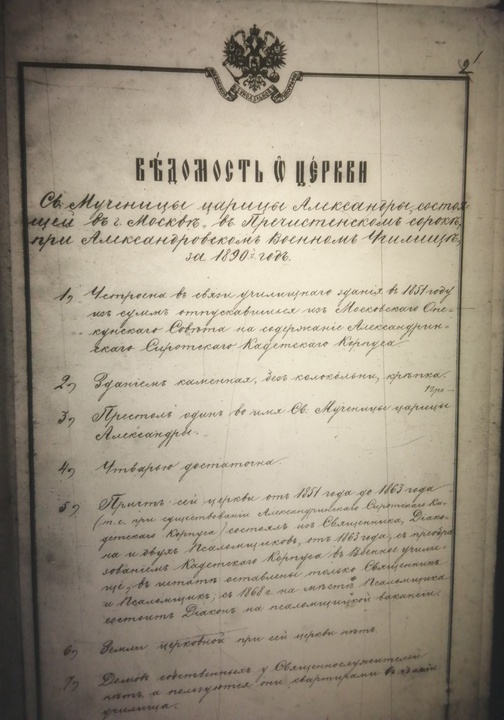 2
ВѢДОМОСТЬ Ѽ ЦЕ́РКВИ
Св. Мученицы царицы Александры, состоя-
щей въ г. Москвѣ, въ Пречистенскомъ сорокѣ,
при Александровскомъ Военномъ Училищѣ,
за 1890й годъ.
1) Устроена въ связи училищнаго зданія въ 1851 году
изъ суммъ отпускавшихся изъ Московскаго Опе-
кунскаго Совѣта на содержаніе Александрин-
скаго Сиротскаго Кадетскаго Корпуса.
2) Зданіемъ каменная, безъ колокольни, крѣпка.
3) Престолъ одинъ во имя Св. Мученицы царицы
Александры.
4) Утварью достаточна.
5) Причтъ сей церкви отъ 1851 года до 1863 года
(т.е. при существованіи Александринскаго Сиротскаго Ка-
детскаго Корпуса) состоялъ изъ Священника, Діако-
на и двухъ Псаломщиковъ, отъ 1863 года, съ преобра-
зованіемъ Кадетскаго Корпуса въ Военное учили-
ще, въ штатѣ оставлены только Священникъ
и Псаломщикъ; съ 1868 г. на мѣстѣ Псаломщика
состоитъ Діаконъ на псаломщицкой вакансіи.
6) Земли церковной при сей церкви нѣтъ.
7) Домовъ собственныхъ у Священнослужителей
нѣтъ, а пользуются они квартирами въ зданіи
училища.